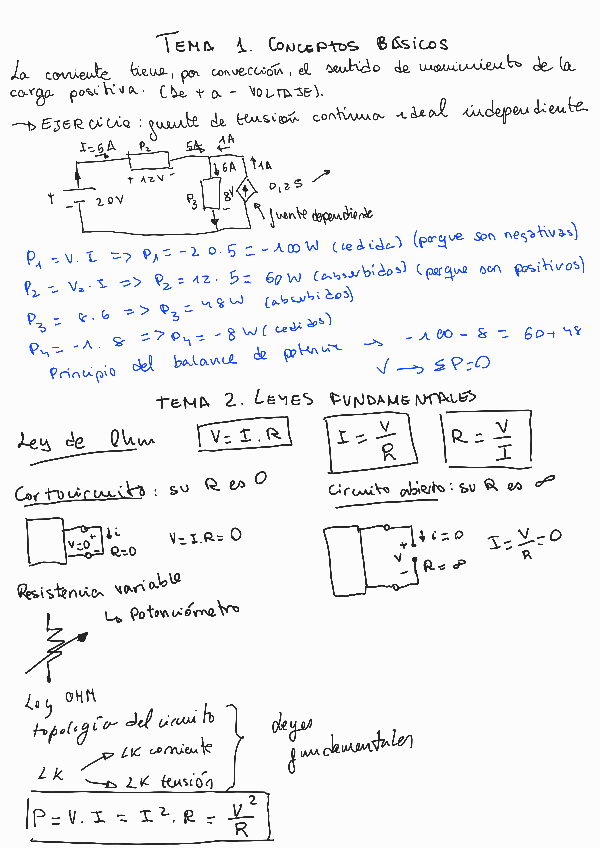 TEMA 1. CONCEPTOS BÁSICOS
La corriente tiene, por convección, el sentido de movimiento de la
carga positiva. (De + a - VOLTAJE).
→ EJERCICIO: fuente de tensión continua ideal independiente
I=5A P2 5A 1A
+ 12V - 6A 1A
+ - 20V P3 8V 0,25
fuente dependiente
P1 = V. I => P1 = -20.5 = -100W (cedida) (porque son negativas)
P2 = V2. I => P2 = 12. 5 = 60W (absorbidos) (porque son positivos)
P3 = 8.6 => P3 = 48W (absorbidos)
P4 = -1. 8 => P4 = -8W (cedidos)
Principio del balance de potencia → -100 - 8 = 60+48
V → ΣP=0
TEMA 2. LEYES FUNDAMENTALES
Ley de Ohm V = I . R I = V/R R = V/I
Cortocircuito: su R es 0 Circuito abierto: su R es ∞
V=0 + - ↓i R=0 V = I.R = 0 + V - ↓ i=0 R = ∞ I = V/R = 0
Resistencia variable
↳ Potenciómetro
Ley OHM
topología del circuito
LK → LK corriente
→ LK tensión
Leyes
fundamentales
P = V. I = I². R = V²/R